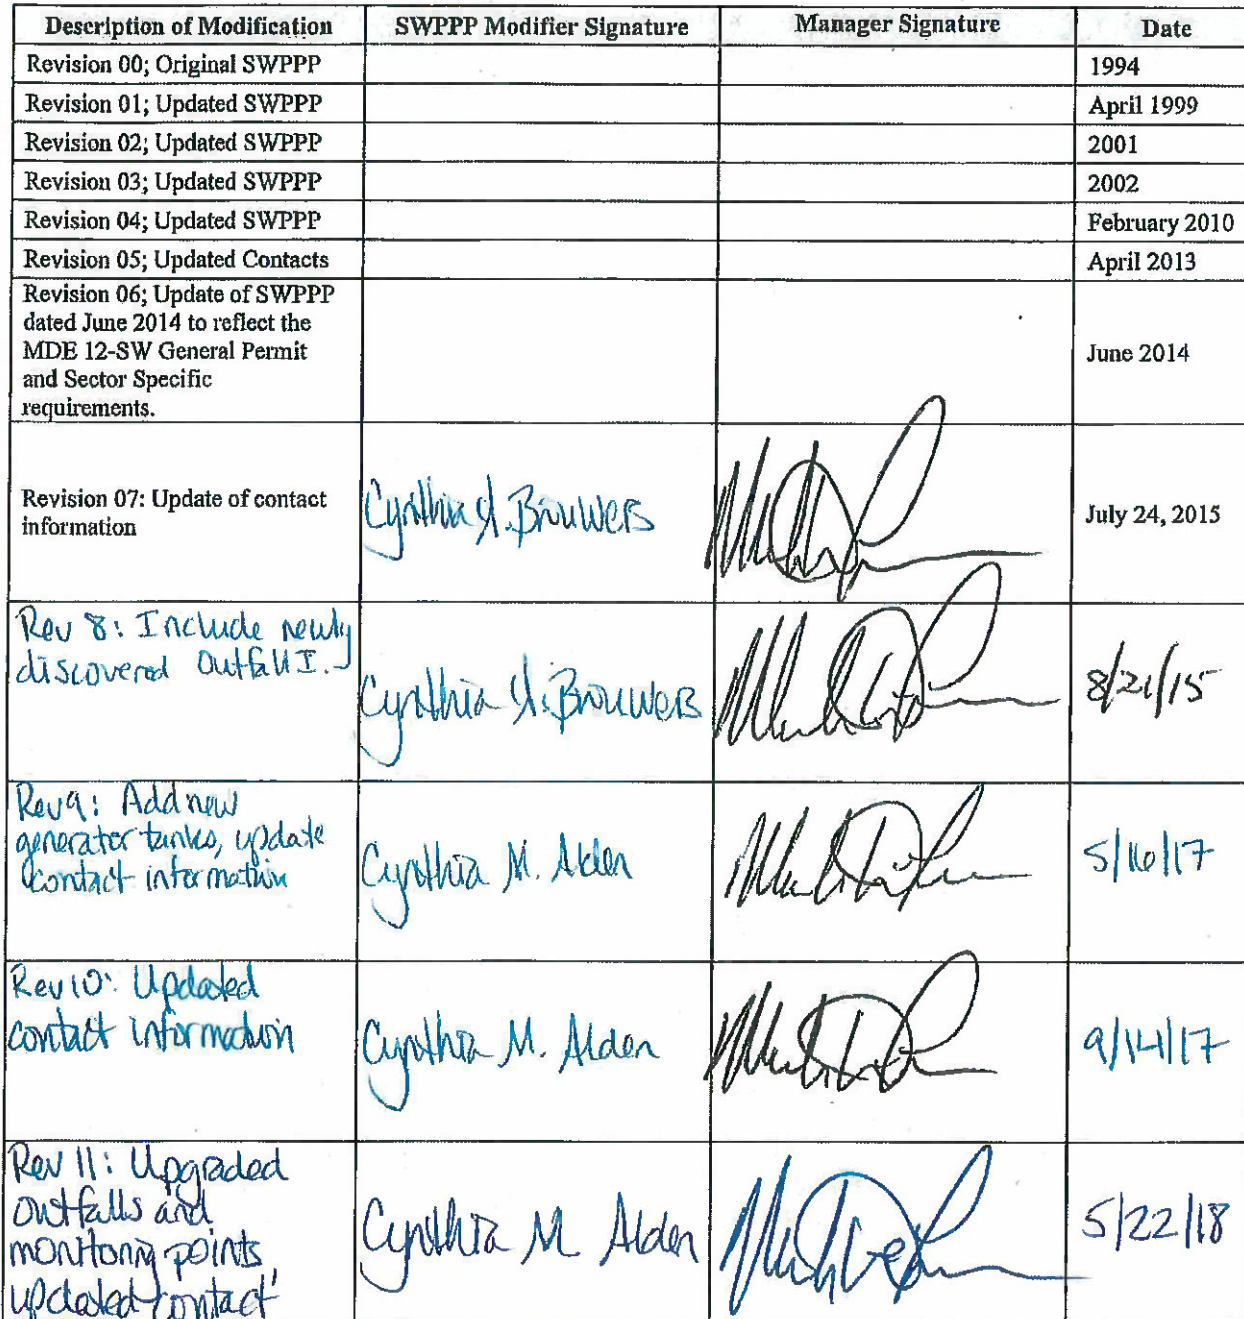 Description of Modification SWPPP Modifier Signature Manager Signature Date
Revision 00; Original SWPPP 1994
Revision 01; Updated SWPPP April 1999
Revision 02; Updated SWPPP 2001
Revision 03; Updated SWPPP 2002
Revision 04; Updated SWPPP February 2010
Revision 05; Updated Contacts April 2013
Revision 06; Update of SWPPP
dated June 2014 to reflect the
MDE 12-SW General Permit
and Sector Specific
requirements.
June 2014
Revision 07: Update of contact
information
Cynthia A. Brouwers
July 24, 2015
Rev 8: Include newly
discovered Outfall I.
Cynthia A. Brouwers
8/21/15
Rev 9: Add new
generator tanks, update
contact information
Cynthia M. Alden
5/16/17
Rev 10: Updated
contact information
Cynthia M. Alden
9/14/17
Rev 11: Upgraded
outfalls and
monitoring points,
updated contact
Cynthia M Alden
5/22/18